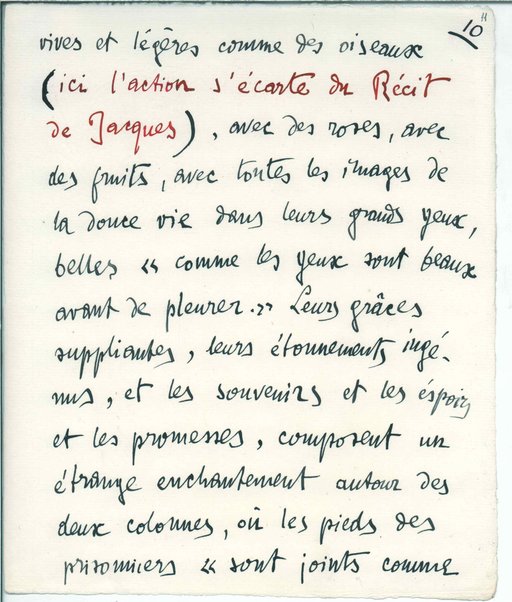 11
10
vives et légères comme des oiseaux
(ici l'action s'écarte du Récit
de Jacques), avec des roses, avec
des fruits, avec toutes les images de
la douce vie dans leurs grands yeux,
belles « comme les yeux sont beaux
avant de pleurer. » Leurs grâces
suppliantes, leurs étonnements ingé-
nus, et les souvenirs et les éspoirs
et les promesses, composent un
étrange enchantement autour des
deux colonnes, où les pieds des
prisonniers « sont joints comme